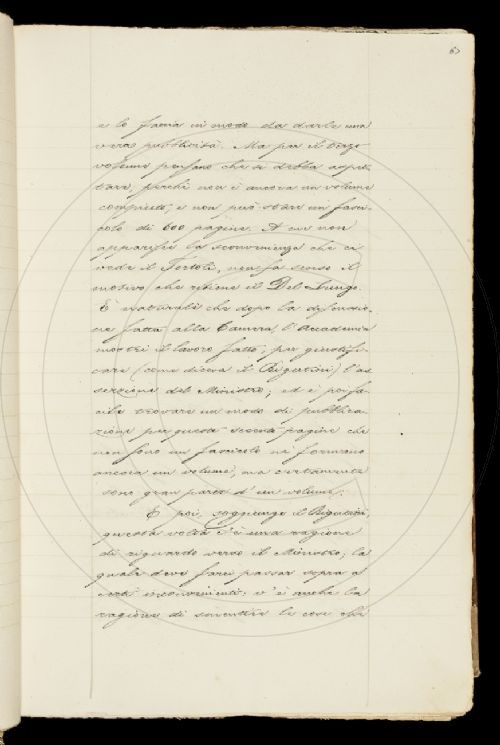 63
e lo faccia in modo da darle una
vera pubblicità. Ma per il terzo
volume pensano che si debba aspet-
tare, perchè non è ancora un volume
completo, e non può stare un fasci-
colo di 600 pagine. A me non
apparisce la sconvenienza che ci
vede il Tortoli, nen fa senso il
motivo che ritiene il Del Lungo.
È naturale che dopo la discussio-
ne fatta alla Camera, l'Accademia
mostri il lavoro fatto, per giustifi-
care (come diceva il Rigutini) l'as-
serzione del Ministro; ed è poi fa-
cile trovare un modo di pubblica-
zione per queste secento pagine che
non sono un fascicolo nè formano
ancora un volume, ma certamente
sono gran parte d'un volume.
E poi, soggiunge il Rigutini,
questa volta c'è una ragione
di riguardo verso il Ministro, la
quale deve farci passar sopra a
certi inconvenienti; v'è anche la
ragione di smentire le cose che